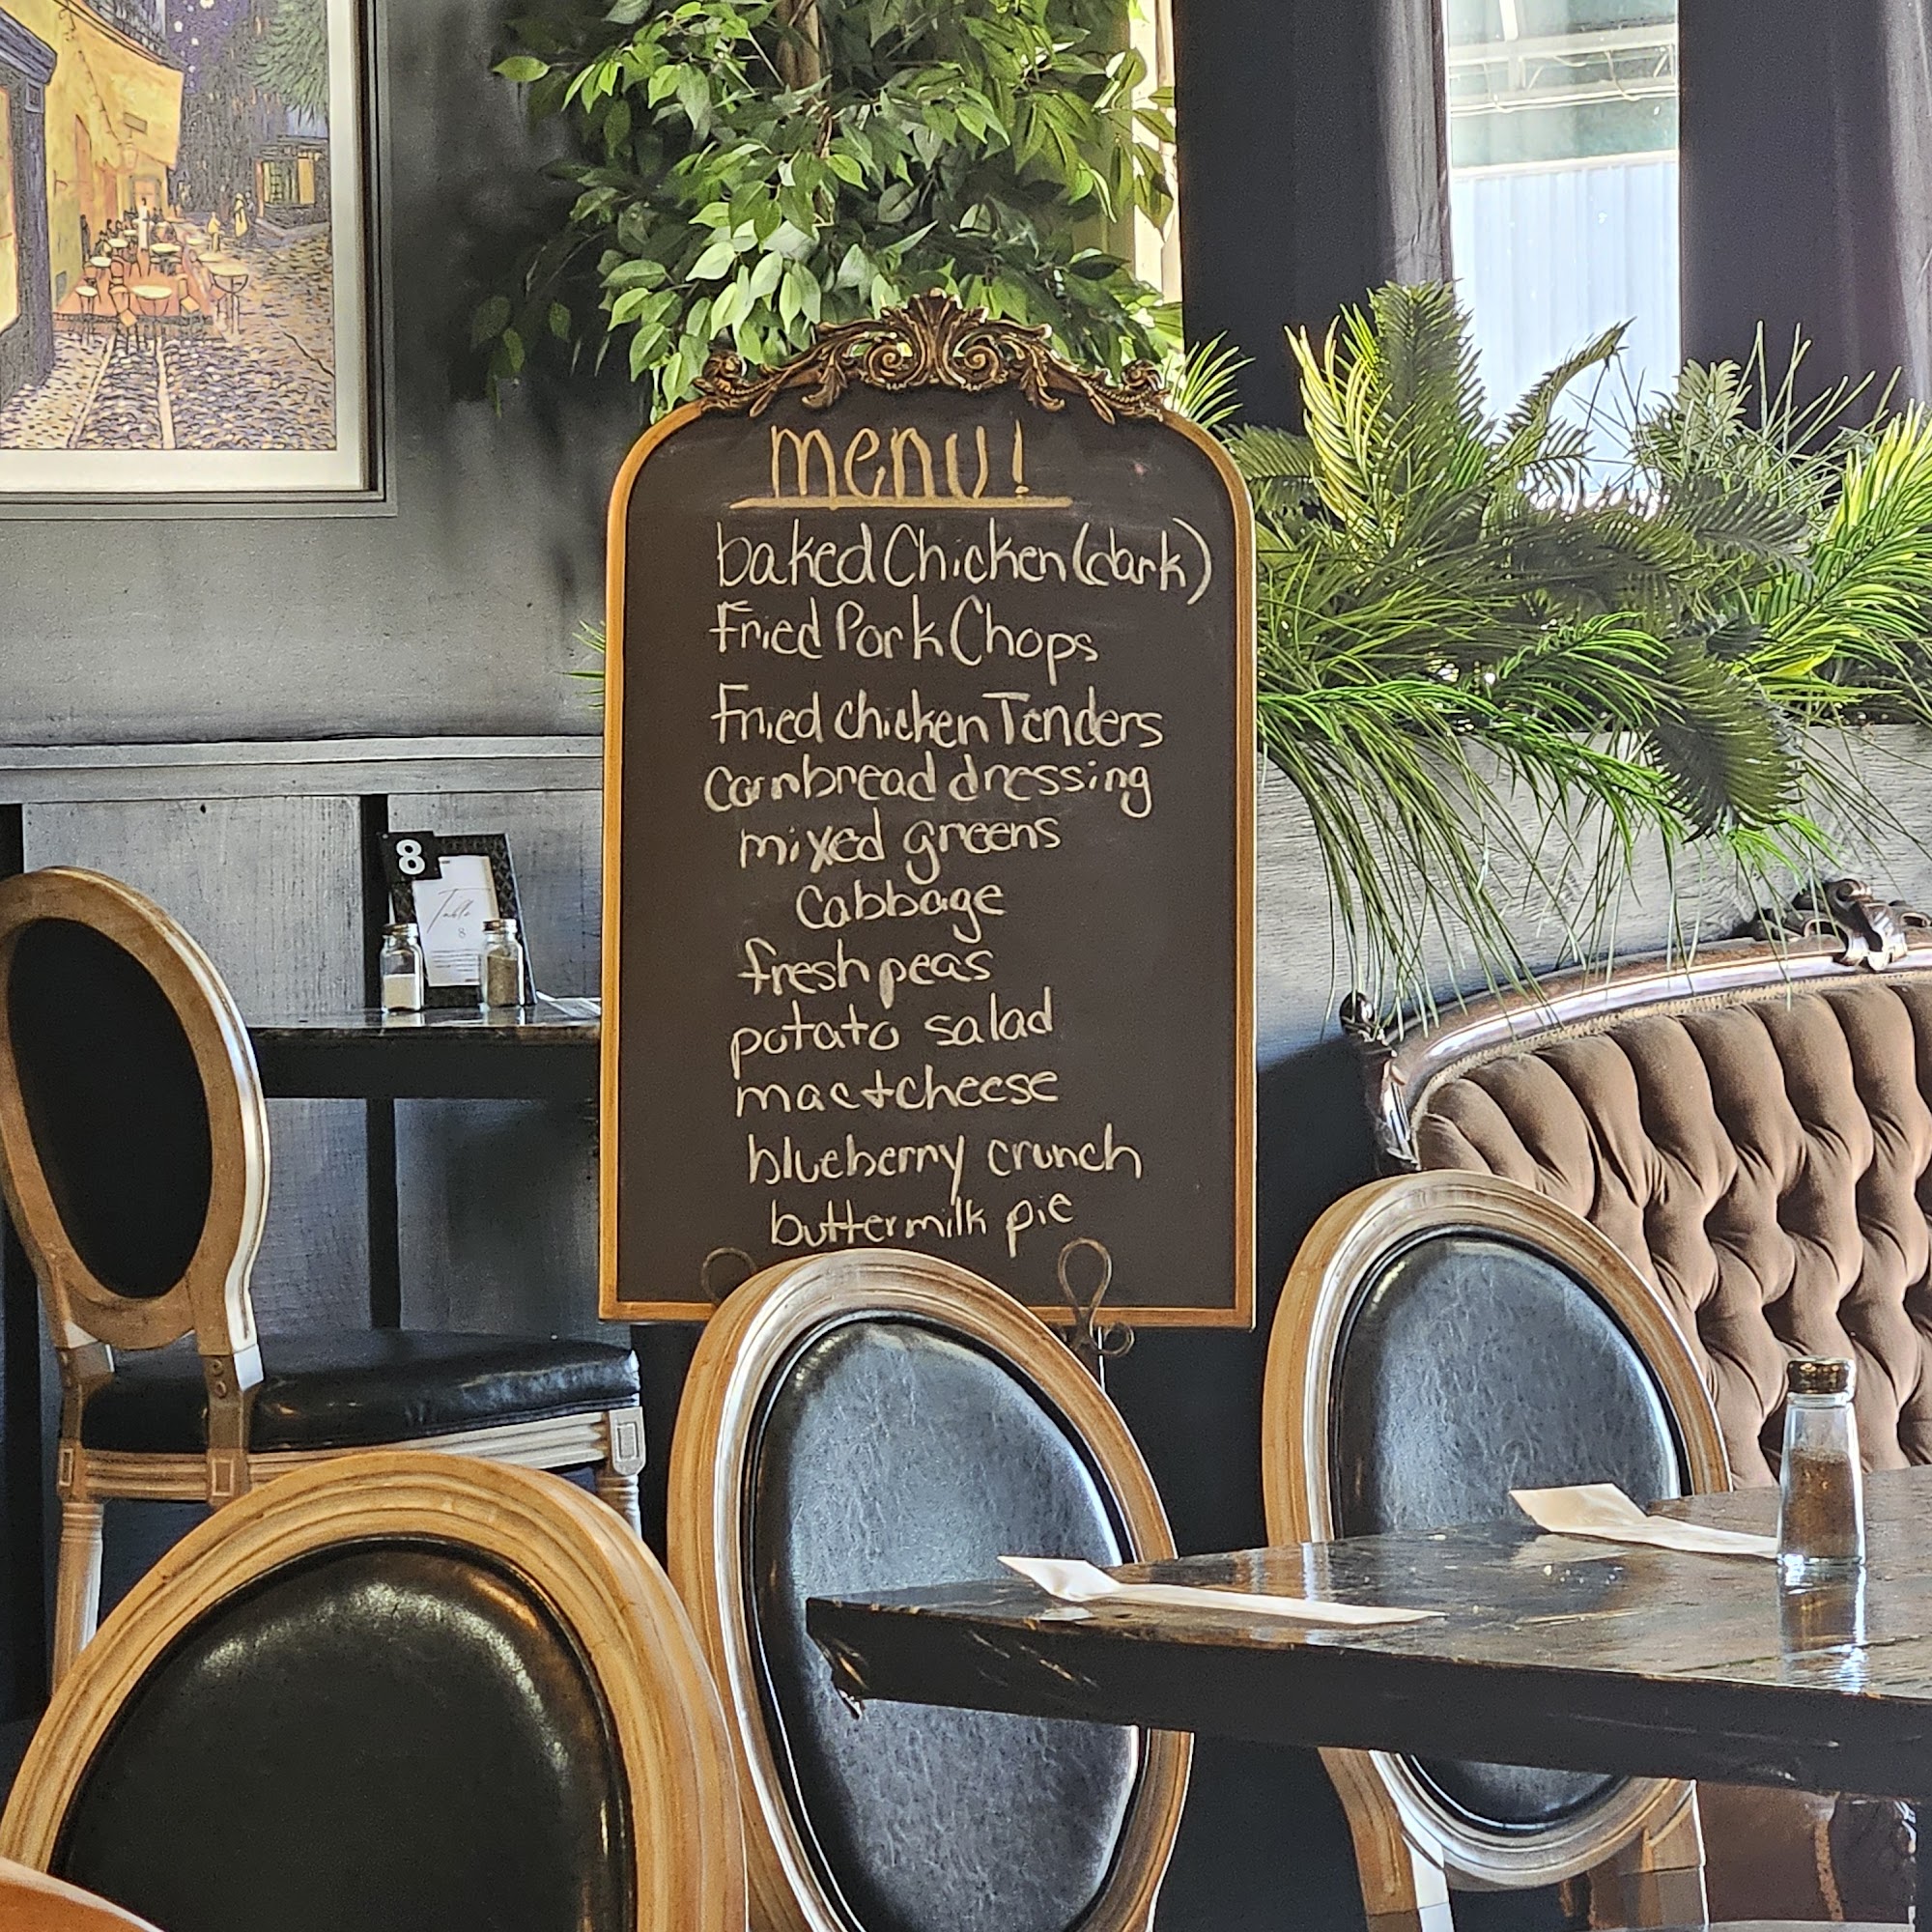 menu!
baked Chicken (dark)
Fried Pork Chops
Fried chicken Tenders
cornbread dressing
mixed greens
Cabbage
fresh peas
potato salad
mac + cheese
blueberry crunch
buttermilk pie
8
Table
8